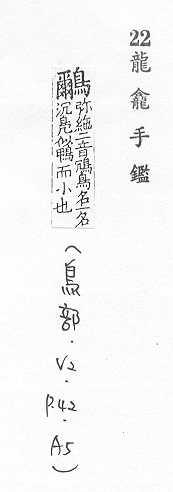 22龍龕手鑑
鸍弥絁二音鸍鳥名一名
沉鳧似鴨而小也
(鳥部.V2.P.42.A5)